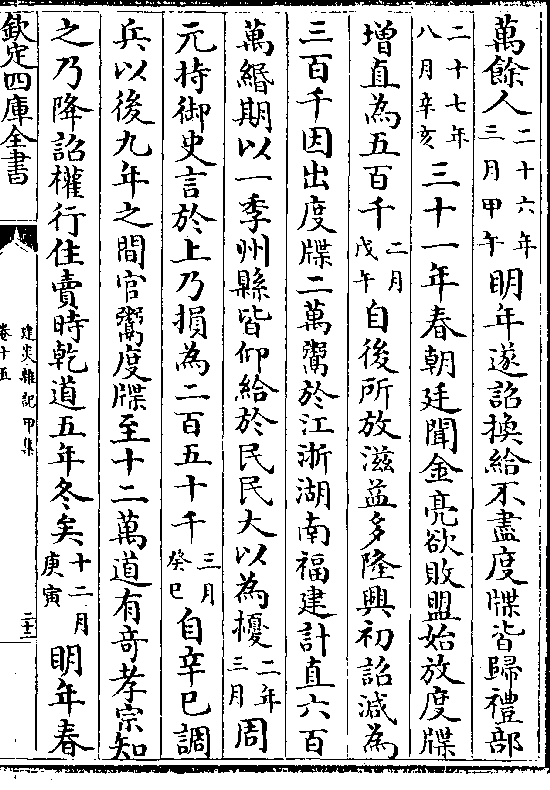 萬餘人二十六年三月甲午明年遂詔換給不盡度牒皆歸禮部
二十七年八月辛亥三十一年春朝廷聞金亮欲敗盟始放度牒
增直為五百千二月戊午自後所放滋益多隆興初詔減為
三百千因出度牒二萬鬻於江浙湖南福建計直六百
萬緡期以一季州縣皆仰給於民民大以為擾二年三月周
元持御史言於上乃損為二百五十千三月癸巳自辛巳調
兵以後九年之間官鬻度牒至十二萬道有奇孝宗知
之乃降詔權行住賣時乾道五年冬矣十二月庚寅明年春
欽定四庫全書
建炎雜記甲集
卷十五